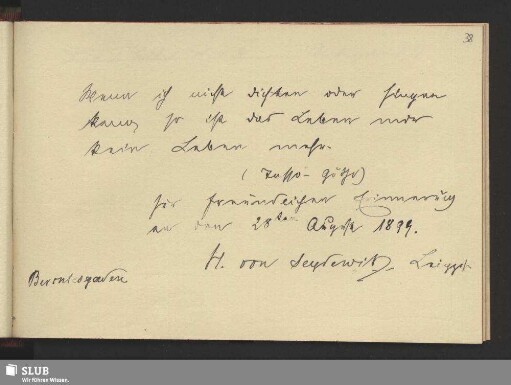 38
Wenn ich nicht dichten oder singen
kann, so ist das Leben mir
kein Leben mehr.
(Tasso - Göthe)
Zur freundlichen Erinnerung
an den 28ten August 1899.
H. von Seydewitz, Leipzig.
SLUB
Wir führen Wissen.